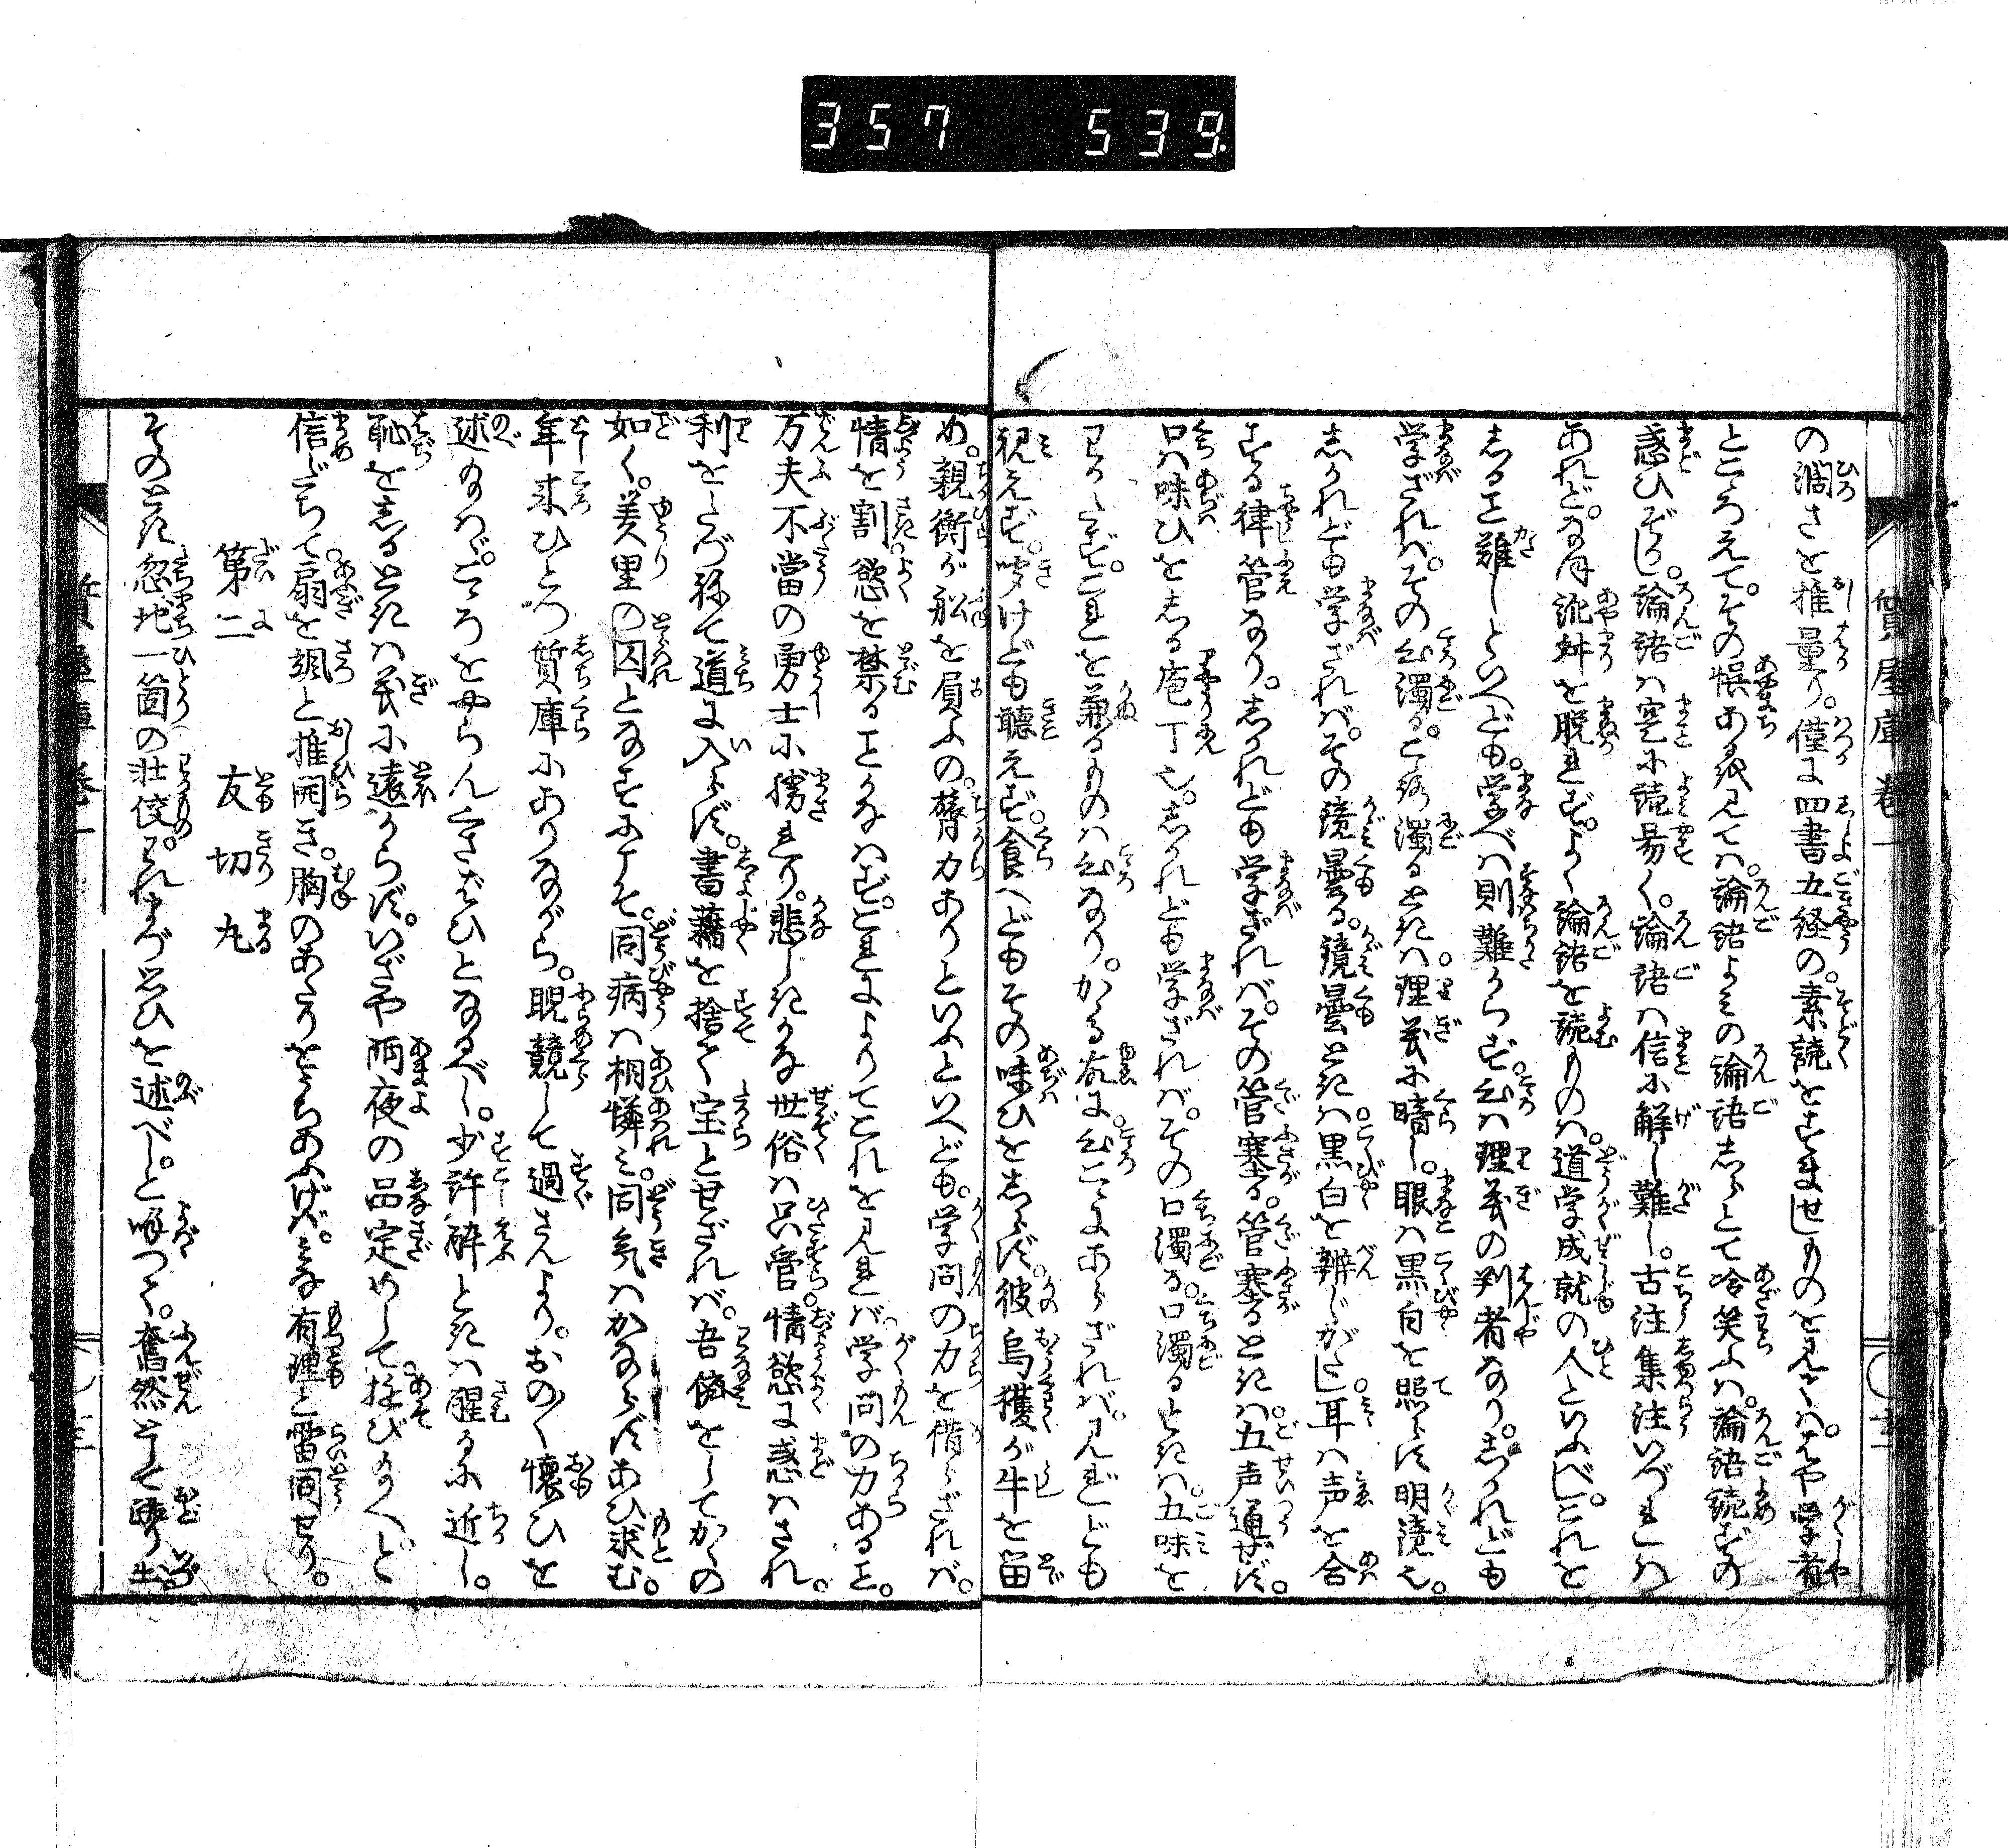 357 539.
質屋庫 巻一
の濶さを推量り。僅に四書五経の。素読をすませしものを見ては。はや学者
ところえて。その悞あるを見ては。論語よみの論語しらとて冷笑ふは。論語読ずの
惑ひぞかし。論語は実に読易く。論語は信に解し難し。古注集注いづれは
あれど。なほ流舛を脱れず。よく論語を読ものは。道学成就の人といふべし。これを
しること難しといへども。学べは則難からず。心は理義の判者なり。しかれども
学ざれば。その心濁る。心濁るときは。理義に暗し。眼は黒白を照らす明鏡也。
しかれども学ざれば。その鏡曇る。鏡曇るときは。黒白を辨じがたし。耳は声を合
する律管なり。しかれども学ざれば。その管塞る。管塞るときは。五声通ぜず。
口は味ひをしる庖丁也。しかれども学ざれば。その口濁る。口濁るときは。五味を
わかたず。これを兼るものは心なり。かゝる故に。心こゝにあらざれば。見れども
視えず。聴けども聴えず。食へどもその味ひをしらず。彼烏獲が牛を留
め。親衡が舩を負ふの。膂力ありといふといへども。学問の力を借らざれば。
情を割慾を禁ることかなはず。これによりてこれを見れば。学問の力あること。
万夫不當の勇士に勝れり。悲しきかな世俗は只管情慾に惑はされ。
利をしも弥て道に入らず。書籍を捨て宝とせざれば。吾儕をしてかくの
如く。羑里の囚となすにこそ。同病は相憐み。同気はかならずあひ求む。
年来ひとつ質庫にありながら。睨競して過さんより。おの〳〵懐ひを
述なば。こゝろをやらんくさはひとなるべし。少許酔ときは醒るに近し。
恥をしるときは義に遠からず。いざや雨夜の品定めして。遊び給へと
信だちて。扇を颯と推開き。胸のあたりをうちあふげば。みな有理と雷同せり。
第二 友切丸
そのとき忽地一箇の壮佼。われまづ思ひを述べしと喚つゝ。奮然として跳り出。
質屋庫 巻一